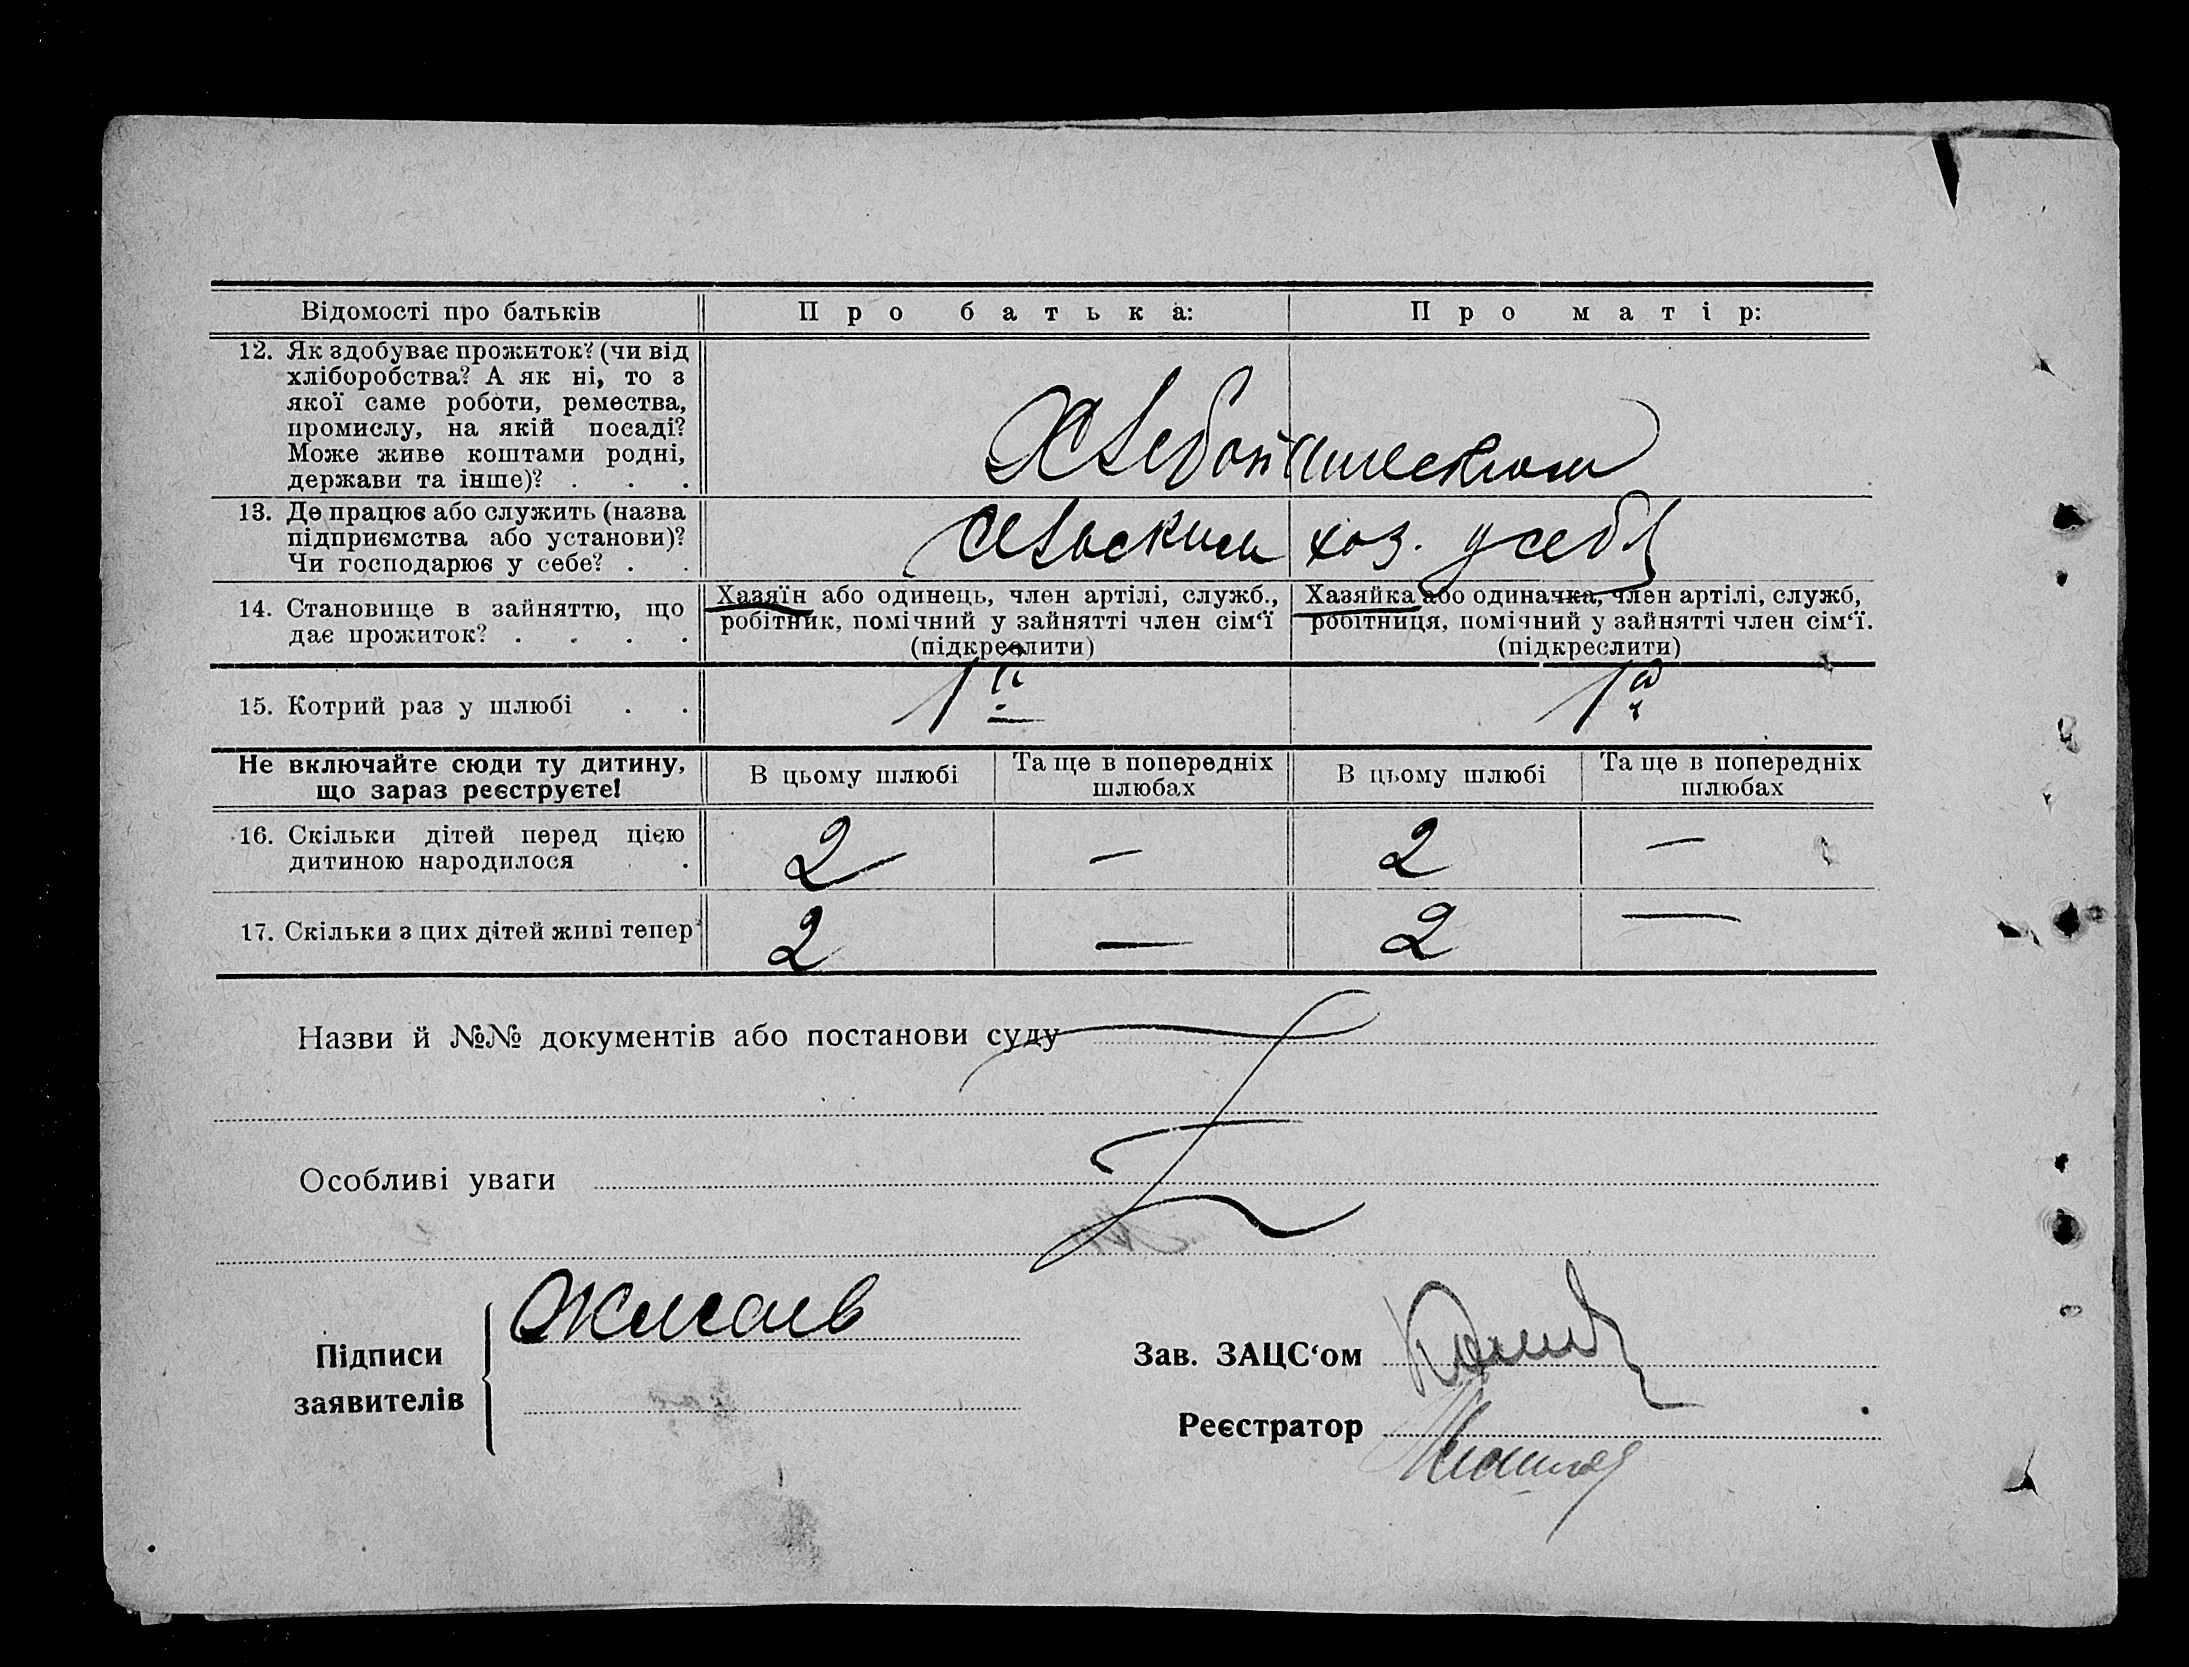 Відомості про батьків
Про батька:
Про матір:
12. Як здобуває прожиток? (чи від
хліборобства? А як ні, то з
якої саме роботи, ремества,
промислу, на якій посаді?
Може живе коштами родні,
держави та інше)? . . .
Хлебопашеством
13. Де працює або служить (назва
підприємства або установи)?
Чи господарює у себе? . .
сельским хоз. у себя
14. Становище в зайняттю, що
дає прожиток? . . . .
Хазяїн або одинець, член артілі, служб.,
робітник, помічний у зайнятті член сім‘ї
(підкреслити)
Хазяйка або одиначка, член артілі, служб,
робітниця, помічний у зайнятті член сім‘ї.
(підкреслити)
15. Котрий раз у шлюбі . .
1й
1й
Не включайте сюди ту дитину,
що зараз реєструєте!
В цьому шлюбі
Та ще в попередніх
шлюбах
В цьому шлюбі
Та ще в попередніх
шлюбах
16. Скільки дітей перед цією
дитиною народилося .
2 — 2 —
17. Скільки з цих дітей живі тепер
2 — 2 —
Назви й №№ документів або постанови суду
Особливі уваги
Підписи
заявителів
Зав. ЗАЦС‘ом
Реєстратор